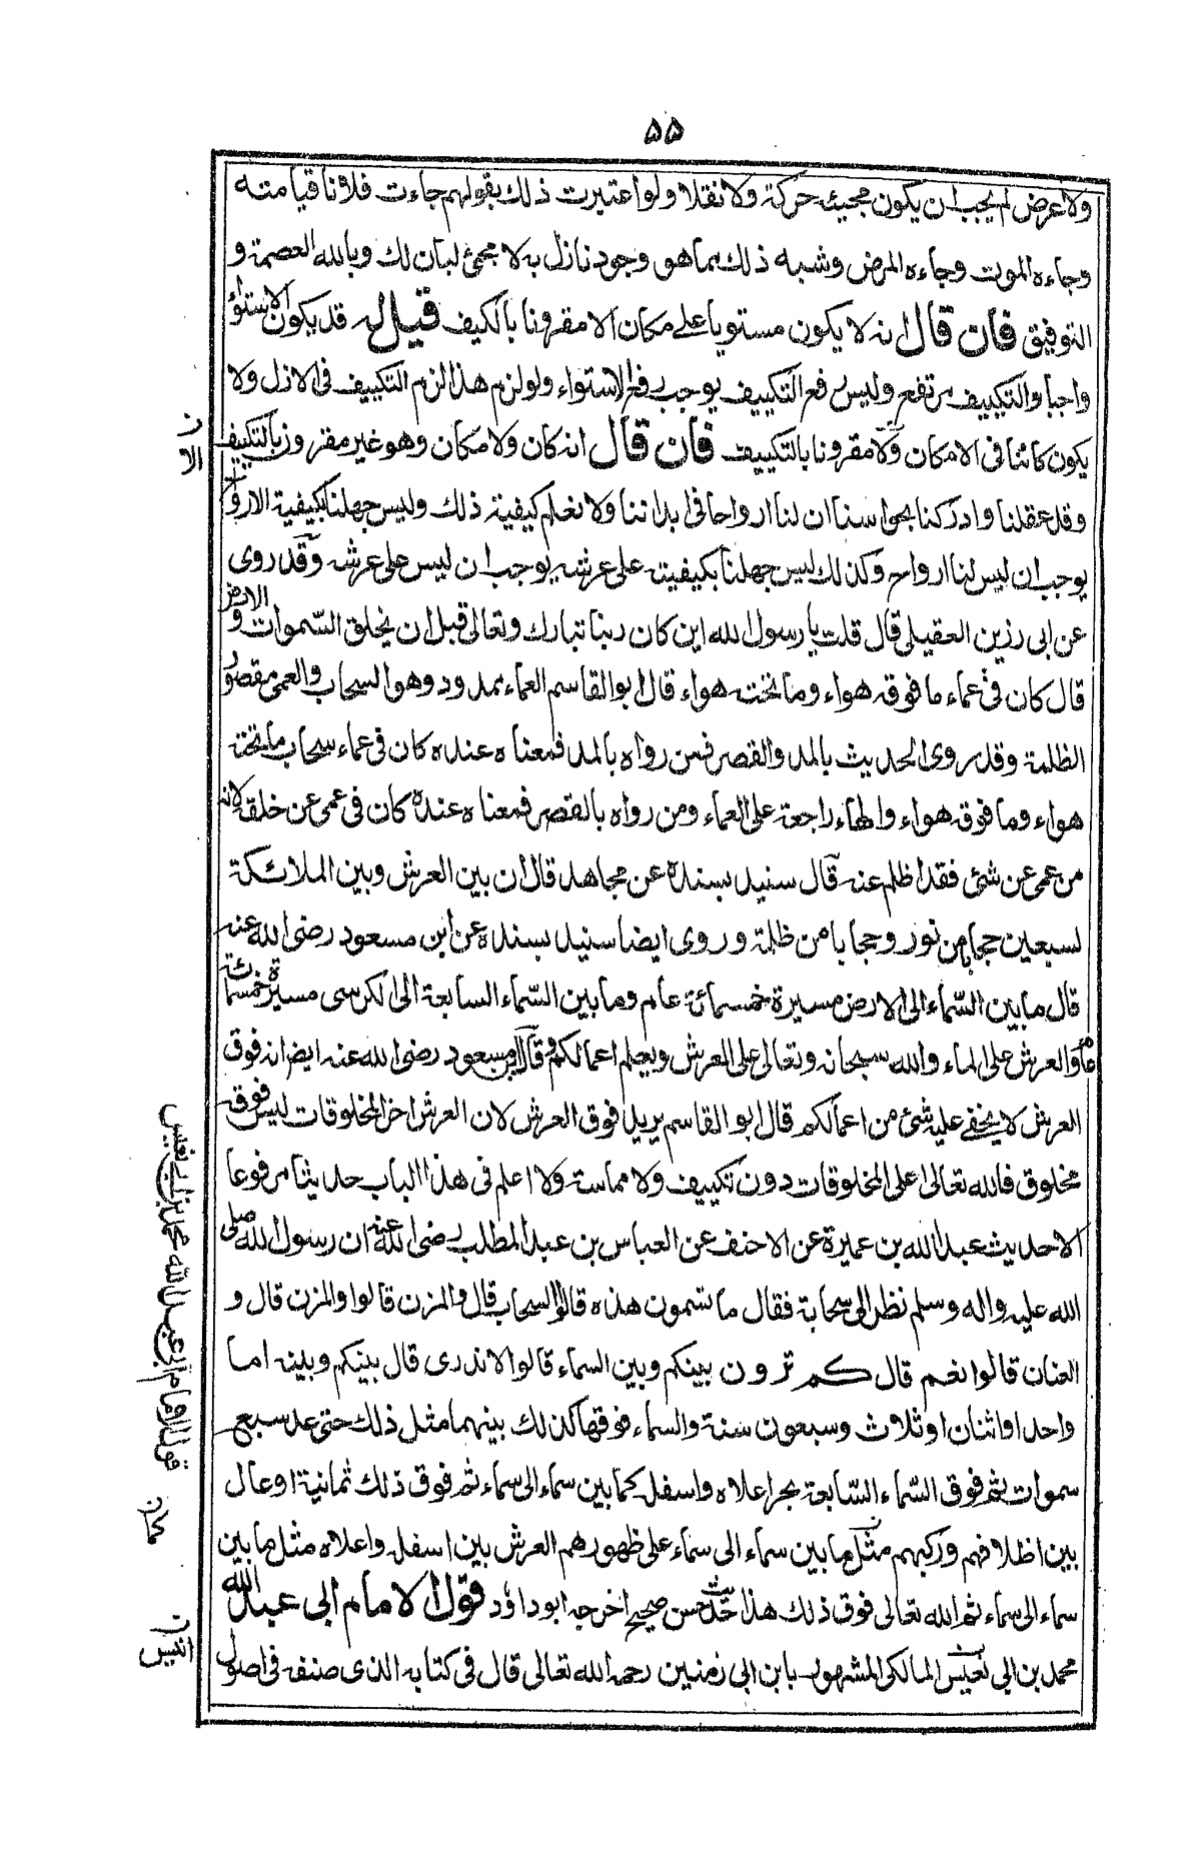 ۵۵
ولا عرض لم يجب ان يكون مجيئه حركة ولا نقلا ولو اعتبرت ذلك بقولهم جاءت فلانا قيامته
وجاءه الموت وجاءه المرض وشبه ذلك مما هو وجود نازل به لا مجئ لبان لك وبالله العصمة و
التوفيق فان قال انه لا يكون مستويا على مكان الا مقرونا بالكيف قيل قد يكون الاستواء
واجبا والتكييف مرتفع وليس رفع التكييف يوجب رفع الاستواء ولو لزم هذا لزم التكييف فى الازل ولا
يكون كائنا فى لا مكان ولا مقرونا بالتكييف فان قال انه كان ولا مكان وهو غير مقرون بالتكييف
وقد عقلنا وادركنا بحواسنا ان لنا ارواحا فى ابداننا ولا نعلم كيفية ذلك وليس جهلنا بكيفية الارواح
يوجب ان ليس لنا ارواح وكذلك ليس جهلنا بكيفيته على عرشه يوجب ان ليس على عرشه وقد روى
عن ابى رزين العقيلى قال قلت يا رسول الله اين كان ربنا تبارك وتعالى قبل ان يخلق السّموات والارض
قال كان فى عماء ما فوقه هواء وما تحته هواء قال ابو القاسم العماء ممدود وهو السحاب والعمى مقصور
الظلمة وقد روى الحديث بالمد والقصر فمن رواه بالمد فمعناه عنده كان فى عماء سحاب ما تحته
هواء وما فوقه هواء والهاء راجعة على العماء ومن رواه بالقصر فمعناه عنده كان فى عمى عن خلقه لانه
من عمى عن شئ فقد اظلم عنه قال سنيد بسنده عن مجاهد قال ان بين العرش وبين الملائكة
لسبعين حجابا من نور وحجابا من ظلمة وروى ايضا سنيد بسنده عن ابن مسعود رضى الله عنه
قال ما بين السّماء الى الارض مسيرة خمسمائة عام وما بين السّماء السابعة الى الكرسى مسيرة خمسمائة
عام والعرش على الماء والله سبحانه وتعالى على العرش ويعلم اعمالكم وقال ابن مسعود رضى الله عنه ايضا انه فوق
العرش لا يخفے عليه شئ من اعمالكم قال ابو القاسم يريد فوق العرش لان العرش اخر المخلوقات ليس فوقه
مخلوق فالله تعالى اعلى المخلوقات دون تكييف ولا مماسة ولا اعلم فى هذا الباب حديثا مرفوعا
الا حديث عبد الله بن عميرة عن الاحنف عن العباس بن عبد المطلب رضى الله عنه ان رسول الله صلى
الله عليه واله وسلم نظر الى سحابة فقال ما تسمون هذه قالوا السحاب قال والمزن قالوا والمزن قال و
العنان قالوا نعم قال كم ترون بينكم وبين السماء قالوا لا ندرى قال بينكم وبينه اما
واحد او اثنان او ثلاث وسبعون سنة والسماء فوقها كذلك بينهما مثل ذلك حتى عد سبع
سموات ثم فوق السّماء السّابعة بحر اعلاه واسفله كما بين سماء الى سماء ثم فوق ذلك ثمانية اوعال
بين اظلافهم وركبهم مثل ما بين سماء الى سماء على ظهورهم العرش بين اسفله واعلاه مثل ما بين
سماء الى سماء ثم الله تعالى فوق ذلك هذا حديث حسن صحيح اخرجه ابو داؤد قول الامام ابى عبد الله
محمد بن ابى نعيس المالكى المشهور بابن ابى زمنين رحمه الله تعالى قال فى كتابه الذى صنفه فى اصول
الا ن
قول الامام ابى عبد الله محمد بن ابى نعيس